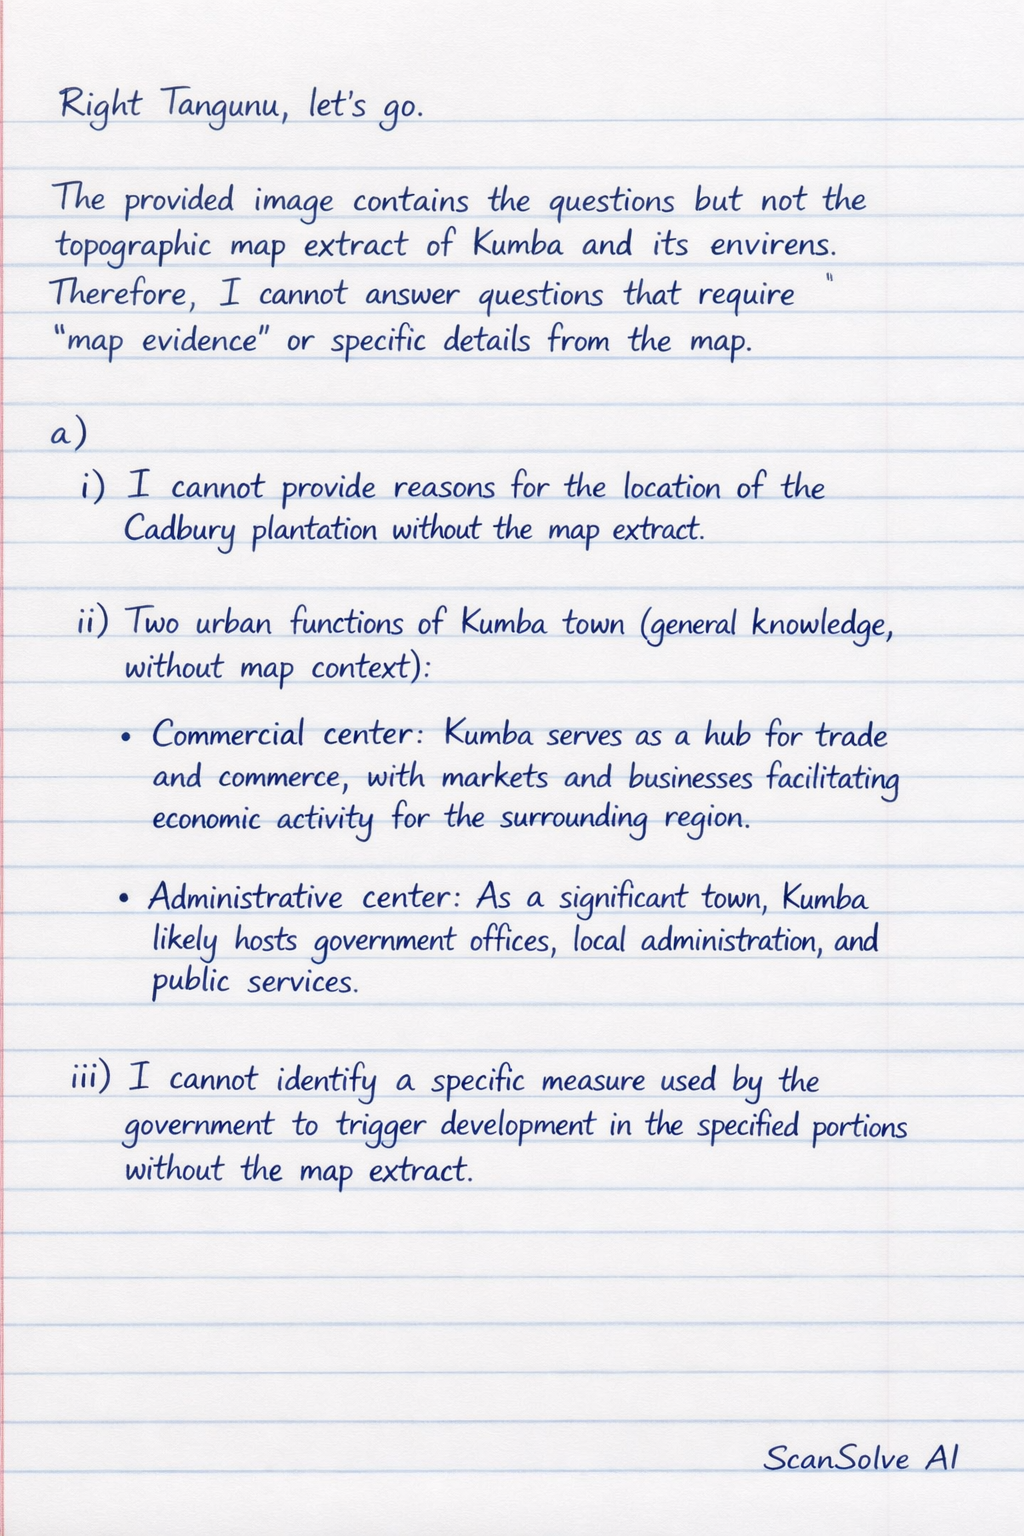 Right Tangunu, let's go.
The provided image contains the questions but not the
topographic map extract of Kumba and its envirens.
Therefore, I cannot answer questions that require "
"map evidence" or specific details from the map.
a)
i) I cannot provide reasons for the location of the
Cadbury plantation without the map extract.
ii) Two urban functions of Kumba town (general knowledge,
without map context):
• Commercial center: Kumba serves as a hub for trade
and commerce, with markets and businesses facilitating
economic activity for the surrounding region.
• Administrative center: As a significant town, Kumba
likely hosts government offices, local administration, and
public services.
iii) I cannot identify a specific measure used by the
government to trigger development in the specified portions
without the map extract.
ScanSolve AI